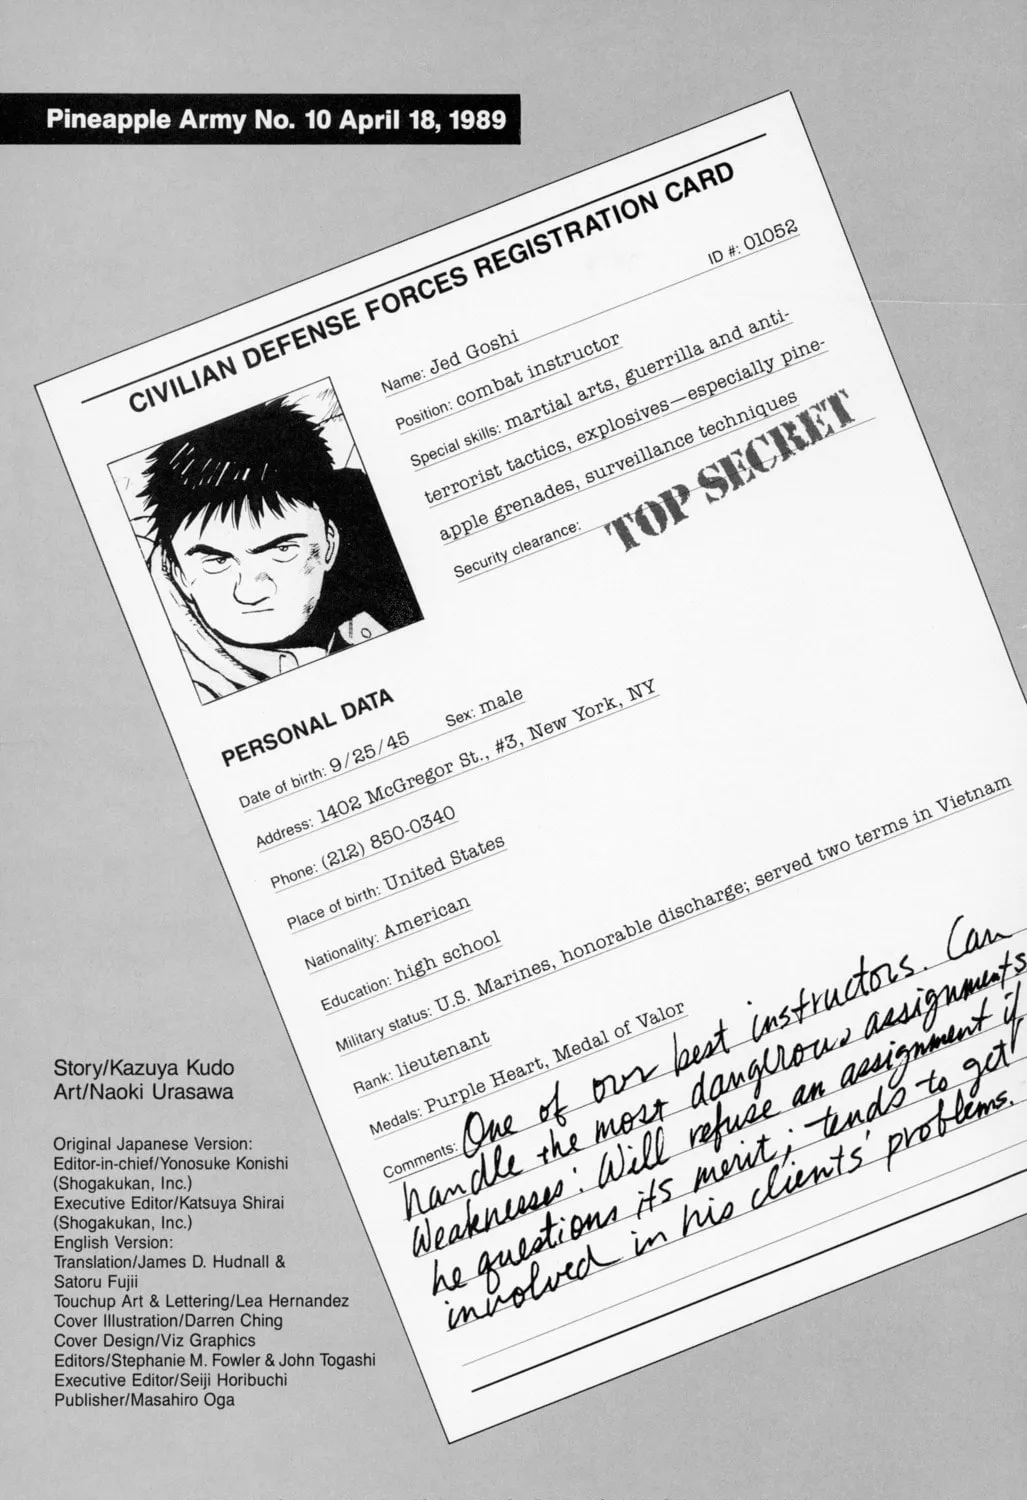 Pineapple Army No. 10 April 18, 1989
CIVILIAN DEFENSE FORCES REGISTRATION CARD
ID #: 01052
Name: Jed Goshi
Position: combat instructor
Special skills: martial arts, guerrilla and anti-
terrorist tactics, explosives—especially pine-
apple grenades, surveillance techniques
Security clearance: TOP SECRET
PERSONAL DATA
Date of birth: 9/25/45 Sex: male
Address: 1402 McGregor St., #3, New York, NY
Phone: (212) 850-0340
Place of birth: United States
Nationality: American
Education: high school
Military status: U.S. Marines, honorable discharge; served two terms in Vietnam
Rank: lieutenant
Medals: Purple Heart, Medal of Valor
Comments: One of our best instructors. Can
handle the most dangerous assignments
Weaknesses: Will refuse an assignment if
he questions its merit; tends to get
involved in his clients' problems.
Story/Kazuya Kudo
Art/Naoki Urasawa
Original Japanese Version:
Editor-in-chief/Yonosuke Konishi
(Shogakukan, Inc.)
Executive Editor/Katsuya Shirai
(Shogakukan, Inc.)
English Version:
Translation/James D. Hudnall &
Satoru Fujii
Touchup Art & Lettering/Lea Hernandez
Cover Illustration/Darren Ching
Cover Design/Viz Graphics
Editors/Stephanie M. Fowler & John Togashi
Executive Editor/Seiji Horibuchi
Publisher/Masahiro Oga